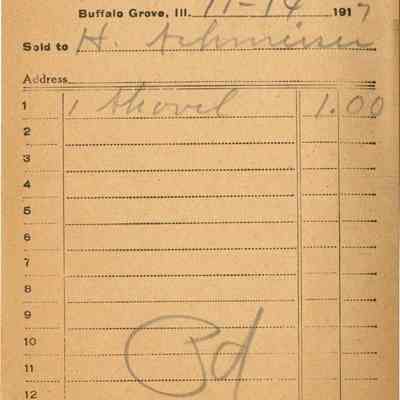 Buffalo Grove, Ill. 11-14 1917
Sold to H.
Address
1 1 Shovel 1.00
2
3
4
5
6
7
8
9
10
11
12
Pd